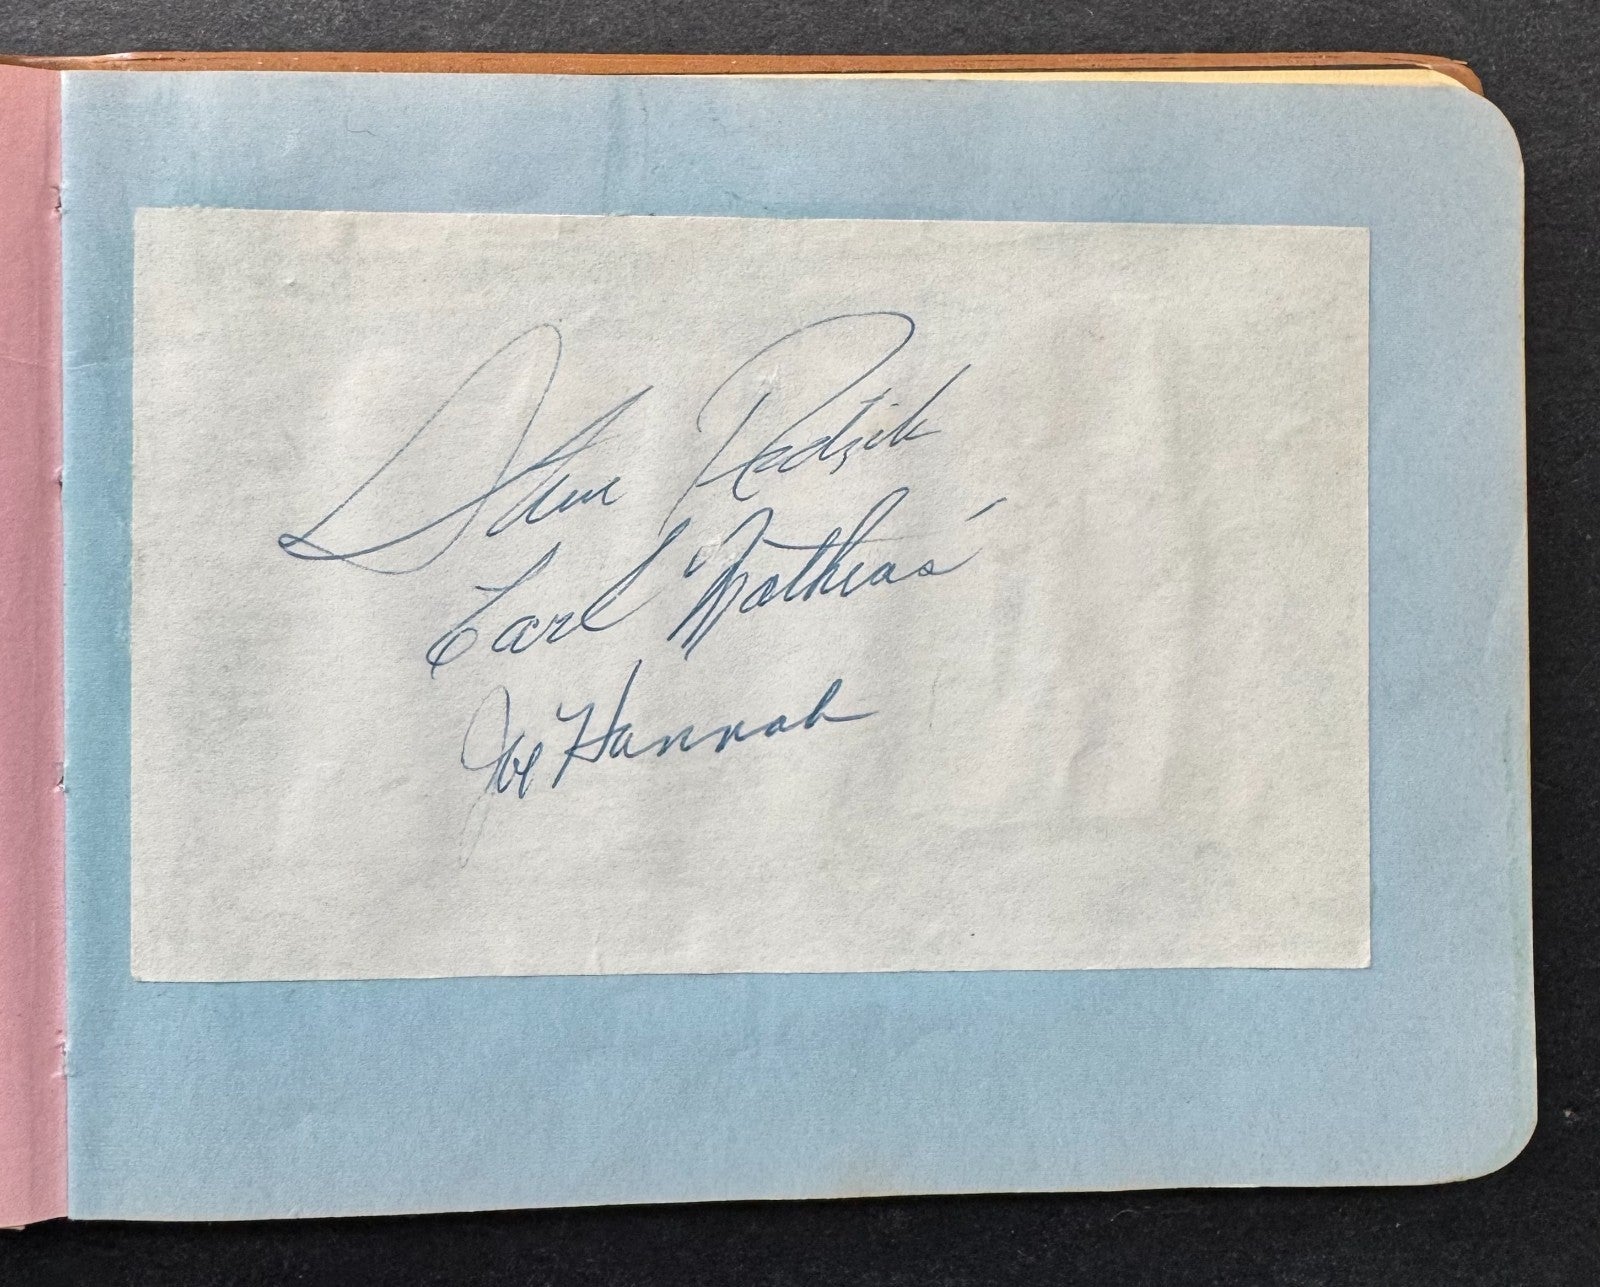 Steve Redzik
Carl Mathias
Joe Hannah